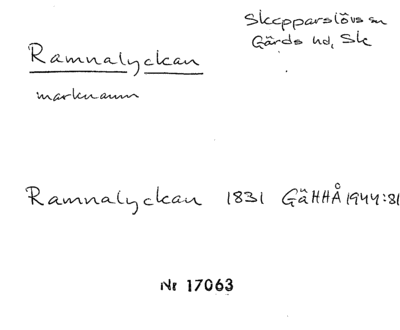 Skepparslövs sn
Gärds hd, Sk
Ramnalyckan
marknamn
Ramnalyckan 1831 GäHHÅ 1944:81
Nr 17063